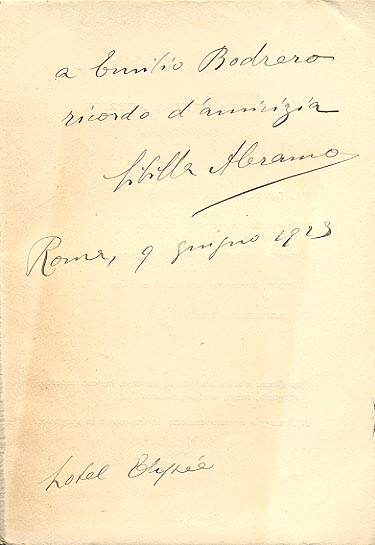 a Emilio Bodrero
ricordo d'amicizia
Sibilla Aleramo
Roma, 9 giugno 1923
hotel Elysée